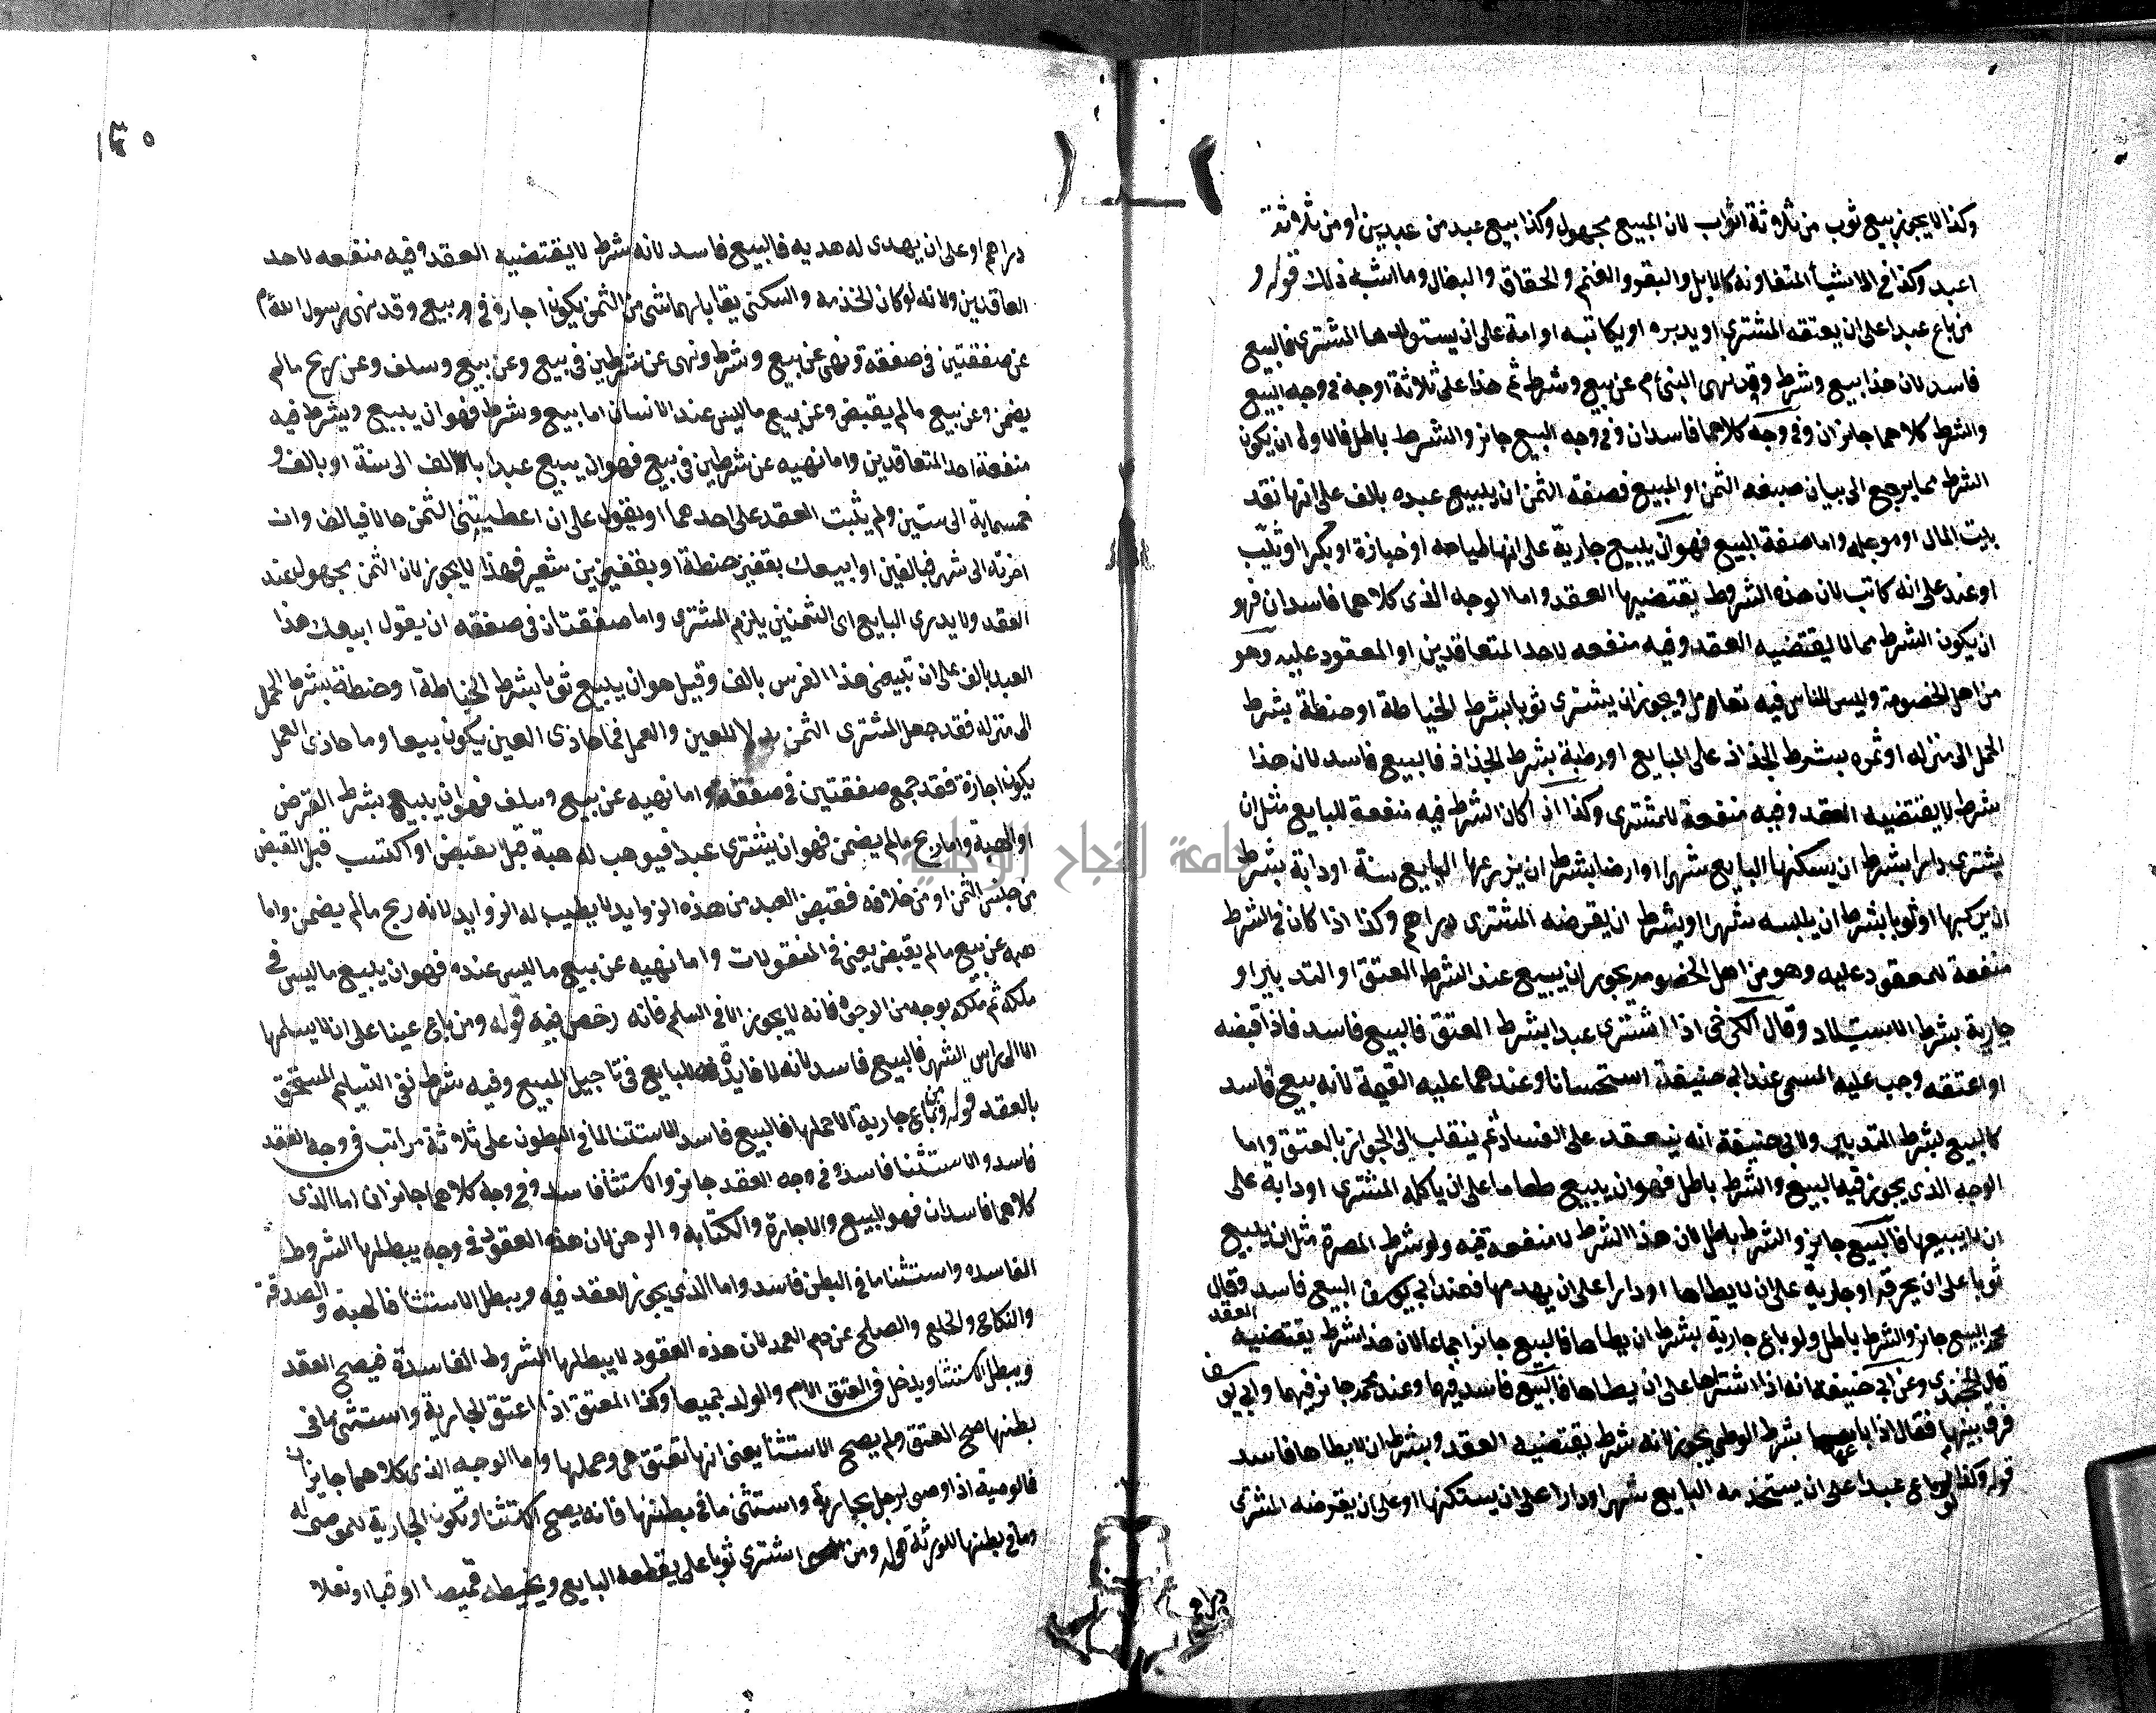 وكذا لا يجوز بيع ثوب من ثلاثة اثواب لان المبيع مجهول وكذا بيع عبد من عبدين او من ثلاثة
اعبد وكذا في الاشيأ المتفاوته كالابل والبقر والغنم والخفاف والبغال وما اشبه ذلك قوله و
من باع عبدا على ان يعتقه المشتري او يدبره او يكاتبه او امة على ان يستولدها المشتري فالبيع
فاسد لان هذا بيع وشرط وقد نهى النبي م عن بيع وشرط ثم هذا على ثلاثة اوجه في وجه البيع
والشرط كلاهما جايزان وفي وجه كلاهما فاسدان وفي وجه البيع جايز والشرط باطل فالاول ان يكون
الشرط مما يرجع الى بيان صفه الثمن او المبيع فصفه الثمن ان يبيع عبده بالف على انها نقد
بيت المال او موجله واما صفة المبيع فهو ان يبيع جارية على انها طباخه او خبازة او بكر او ثيب
او عبد على انه كاتب لان هذه الشروط يقتضيها العقد واما الوجه الذي كلاهما فاسدان فهو
ان يكون الشرط مما لا يقتضيه العقد وفيه منفعه لاحد المتعاقدين او المعقود عليه وهو
من اهل الخصومة وليس للناس فيه تعامل ويجوز ان يشترى ثوبا بشرط الخياطة او حنطة بشرط
الحمل الى منزله او ثمره بشرط الجذاذ على البايع او رطبة بشرط الجذاذ فالبيع فاسد لان هذا
شرط لا يقتضيه العقد وفيه منفعة للمشتري وكذا اذا كان الشرط فيه منفعة للبايع مثل ان
يشترى دارا بشرط ان يسكنها البايع شهرا او ارضا بشرط ان يزرعها البايع سنة او دابة بشرط
ان يركبها او ثوبا بشرط ان يلبسه شهرا او بشرط ان يقرضه المشترى دراهم وكذا اذا كان في الشرط
منفعة للمعقود عليه وهو من اهل الخصومه يجوز ان يبيع عبد الشرط العتق او التدبير او
جارية بشرط الاستيلاد وقال الكرخي اذا اشترى عبدا بشرط العتق فالبيع فاسد فاذا قبضه
او اعتقه وجب عليه المسمى عند ابي حنيفة استحسانا وعندهما عليه القيمة لانه بيع فاسد
كالبيع بشرط التدبير ولابي حنيفة انه ينعقد على الفساد ثم ينقلب الى الجواز بالعتق واما
الوجه الذي يجوز فيه البيع والشرط باطل فهو ان يبيع طعاما على ان ياكله المشترى او دابة على
ان لا يبيعها فالبيع جايز والشرط باطل لان هذا الشرط لا منفعه فيه ولو شرط المضرة مثل ان يبيع
ثوبا على ان يخرقه او جاريه على ان لا يطاها او دارا على ان يهدمها فعند ابي يوسف البيع فاسد وقال
محمد البيع جايز والشرط باطل ولو باع جارية بشرط ان يطاها فالبيع جايز اجماعا لان هذا شرط يقتضيه العقد
قال الخجندي وعن ابي حنيفه انه اذا اشتراها على ان يطاها فالبيع فاسد فيهما وعند محمد جايز فيهما وابي يوسف
فرق بينهما فقال اذا باعها بشرط الوطي يجوز لانه شرط يقتضيه العقد وبشرط ان لا يطاها فاسد
قوله وكذا لو باع عبدا على ان يستخدمه البايع شهرا او دارا على ان يسكنها او على ان يقرضه المشترى
دراهم
١٣٥
دراهم او على ان يهدى له هديه فالبيع فاسد لانه شرط لا يقتضيه العقد وفيه منفعه لاحد
العاقدين ولانه لو كان الخذمه والسكنى يقابلهما شى من الثمن يكون اجارة في بيع وقد نهى رسول الله م
عن صفقتين في صفقة ونهى عن بيع وشرط ونهى عن شرطين في بيع وعن بيع وسلف وعن ربح ما لم
يضمن وعن بيع ما لم يقبض وعن بيع ما ليس عند الانسان اما بيع وشرط فهو ان يبيع ويشرط فيه
منفعة احد المتعاقدين واما نهيه عن شرطين في بيع فهو ان يبيع عبدا بالف الى سنة او بالف و
خمسماية الى سنتين ولم يثبت العقد على احدهما او يقول على ان اعطيتني الثمن حالا فبالف وان
اخرته الى شهر فبالفين او ابيعك بقفيز حنطة او بقفيزين شعير فهذا لا يجوز لان الثمن مجهول عند
العقد ولا يدرى البايع اى الثمنين يلزم المشترى واما صفقتان في صفقه ان يقول ابيعك هذا
العبد بالف على ان تبيعني هذا الفرس بالف وقيل هو ان يبيع ثوبا بشرط الخياطة او حنطة بشرط الحمل
الى منزله فقد جعل المشترى الثمن بدلا للعين والعمل فما حاذى العين يكون بيعا وما حاذى العمل
يكون اجارة فقد جمع صفقتين في صفقة واما نهيه عن بيع وسلف فهو ان يبيع بشرط القرض
او الهبة واما ربح ما لم يضمن فهو ان يشترى عبدا فيوهب له هبة قبل القبض او اكتسب قبل القبض
من جنس الثمن او من خلافه فقبض العبد من هذه الزوايد لا يطيب له الزوايد لانه ربح ما لم يضمن واما
نهيه عن بيع ما لم يقبض يعنى في المنقولات واما نهيه عن بيع ما ليس عنده فهو ان يبيع ما ليس في
ملكه ثم ملكه بوجه من الوجوه فانه لا يجوز الا في السلم فانه رخص فيه قوله ومن باع عينا على ان لا يسلمها
الا الى راس الشهر فالبيع فاسد لانه لا فايدة للبايع في تاجيل المبيع وفيه شرط نفى التسليم المستحق
بالعقد قوله ومن باع جارية الا حملها فالبيع فاسد الاستثنا لما في البطون على ثلاثة مراتب في وجه العقد
فاسد والاستثنا فاسد وفي وجه العقد جايز والاستثنا فاسد وفي وجه كلاهما جايزان اما الذى
كلاهما فاسدان فهو البيع والاجارة والكتابه والرهن لان هذه العقود في وجه يبطلها الشروط
الفاسده واستثنا ما في البطن فاسد واما الذي يجوز العقد فيه ويبطل الاستثنا فالهبة والصدقة
والنكاح والخلع والصلح عن دم العمد لان هذه العقود لا يبطلها الشروط الفاسدة فيصح العقد
ويبطل الاستثنا ويدخل في العتق الام والولد جميعا وكذا العتق اذا اعتق الجارية واستثنى ما في
بطنها صح العتق ولم يصح الاستثنا يعنى انها تعتق هي وحملها واما الوجه الذى كلاهما جايزان
فالوصية اذا اوصى لرجل بجارية واستثنى ما في بطنها فانه يصح الاستثنا وتكون الجارية للموصى له
وما في بطنها للورثة قوله ومن اشترى ثوبا على يقطعه البايع ويخيطه قميصا او قبا او نعلا
جامعة النجاح الوطنية